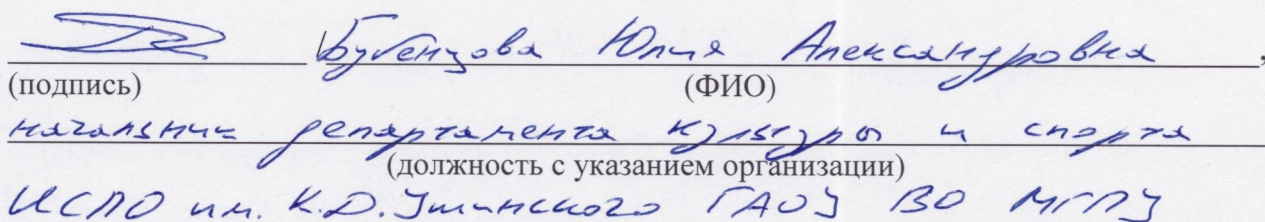 Бубенцова Юлия Александровна,
(подпись) (ФИО)
начальник департамента культуры и спорта
(должность с указанием организации)
ИСПО им. К.Д.Ушинского ГАОУ ВО МГПУ